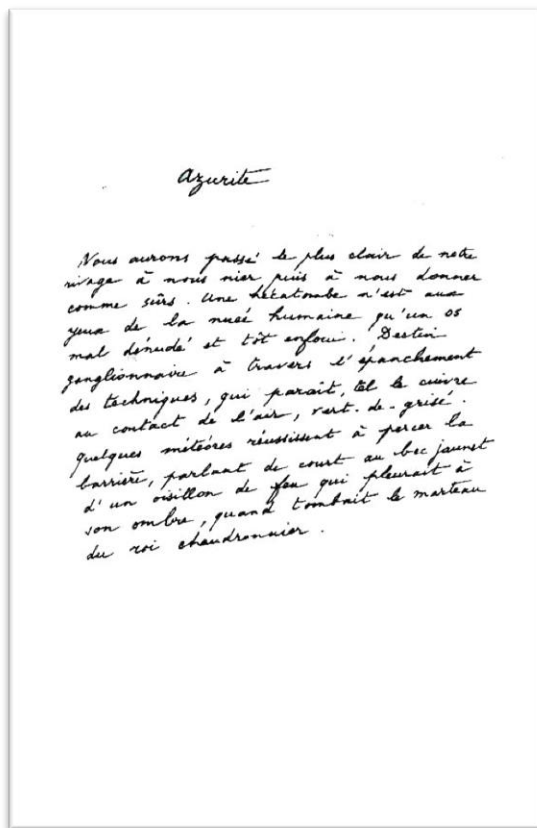 Azurite
Nous aurons passé le plus clair de notre
rivage à nous nier puis à nous donner
comme sûrs. Une hécatombe n'est aux
yeux de la nuée humaine qu'un os
mal dénudé et tôt enfoui. Destin
ganglionnaire à travers l'épanchement
des techniques, qui paraît, tel le cuivre
au contact de l'air, vert-de-grisé.
Quelques météores réussissent à percer la
barrière, parlant de court au bec jaunet
d'un oisillon de feu qui pleurait à
son ombre, quand tombait le marteau
du roi chaudronnier.